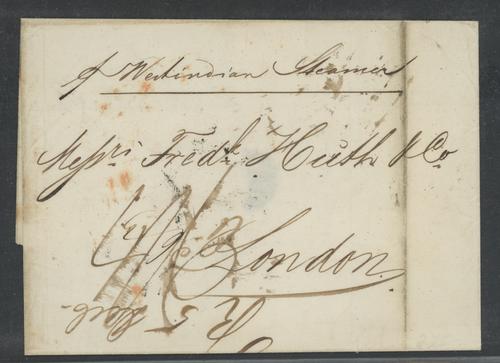 p Westindian Steamer
Messrs. Fredk. Huth & Co
London